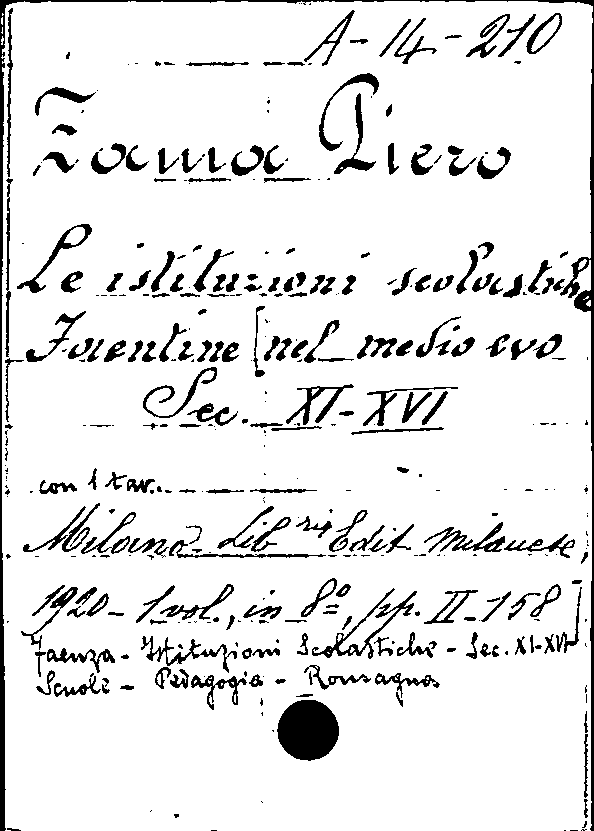 A-14-210
Zama Piero
Le istituzioni scolastiche
Faentine [nel medio evo
Sec. XI-XVI
con 1 tav..
Milano - Lib.rie Edit. milanese,
1920 - 1 vol., in 8º, pp. II-158]
Faenza - Istituzioni Scolastiche - Sec. XI-XVI
Scuole - Pedagogia - Romagna